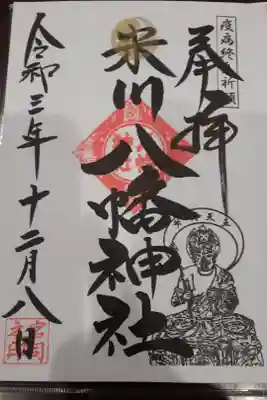 疫病終息祈願
奉拝
米川八幡神社
令和三年十二月八日